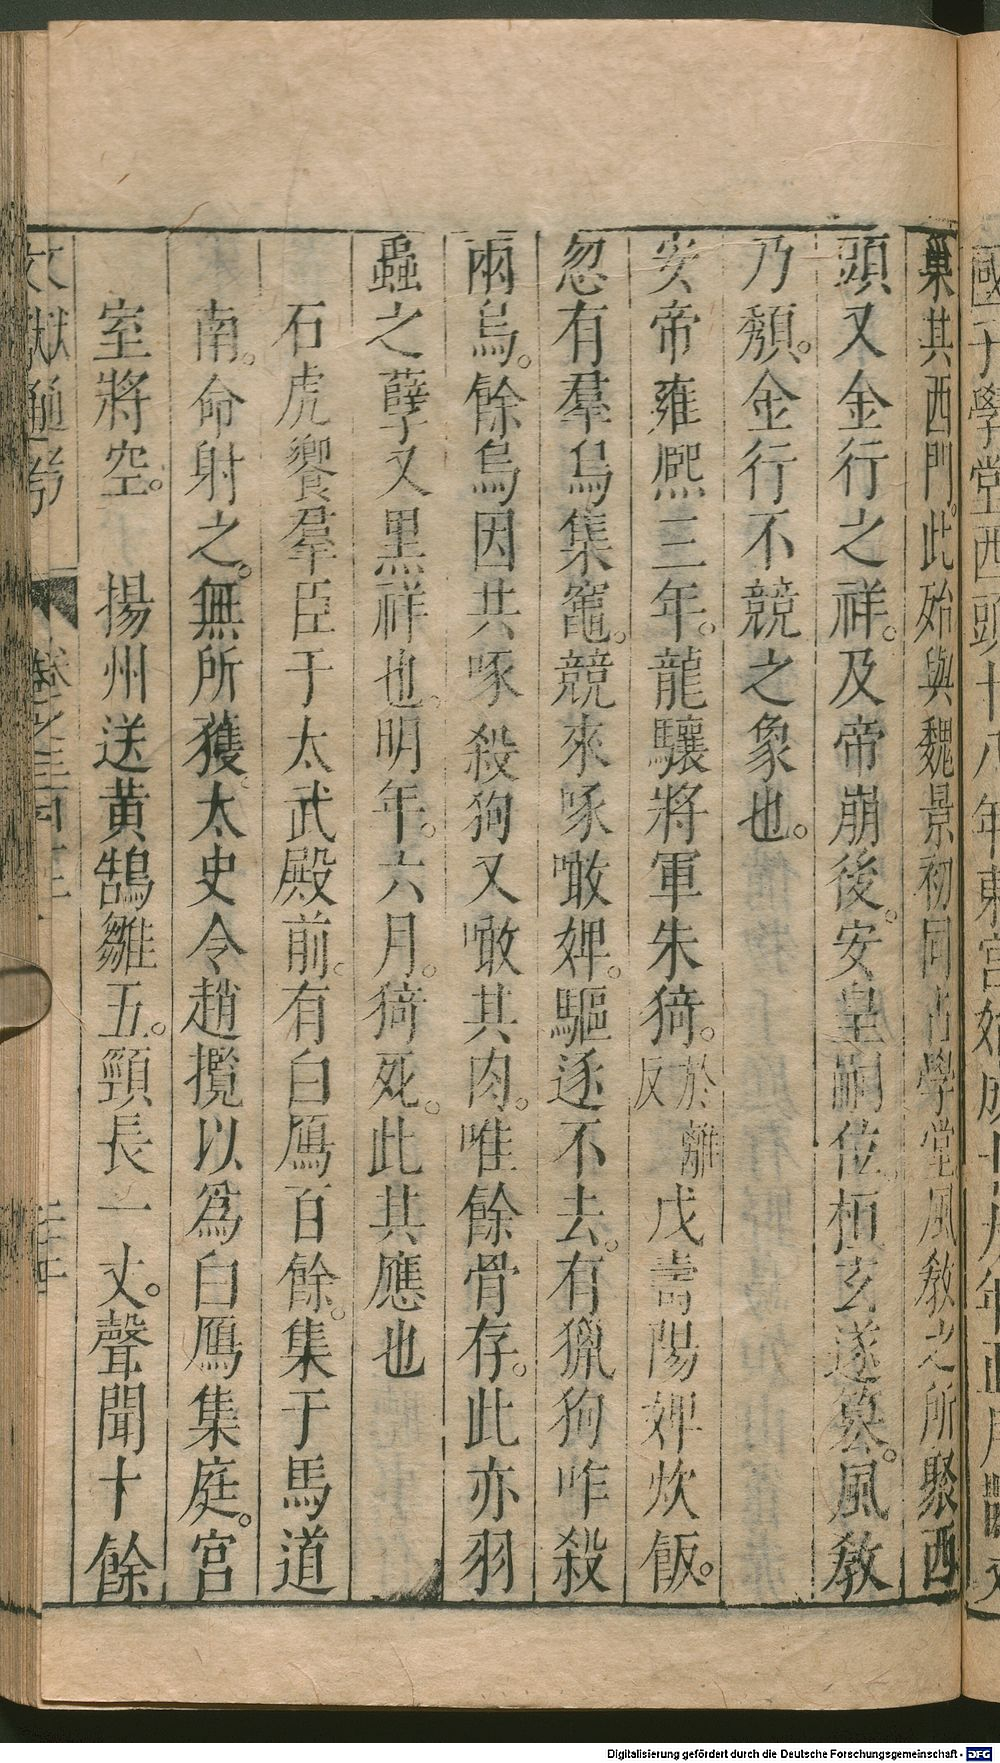 國子學堂西頭十八年東宮始成十九年正月鵲又
巢其西門。此殆與魏景初同占學堂風教之所聚西
頭又金行之祥。及帝崩後。安皇嗣位。桓玄遂簒。風教
乃頹。金行不競之象也。
安帝雍熙三年。龍驤將軍朱猗。於離反戍壽陽婢炊飯。
忽有羣烏集竈。競來啄噉婢。驅逐不去。有獵狗咋殺
兩烏。餘烏因共啄殺狗又噉其肉。唯餘骨存。此亦羽
蟲之孽又黑祥也。明年。六月。猗死。此其應也
石虎饗羣臣于太武殿前。有白鴈百餘。集于馬道
南。命射之。無所獲。太史令趙攬以爲白鴈集庭。宮
室將空。 揚州送黃鵠雛五。頸長一丈。聲聞十餘
文獻通考 卷之三百十二
Digitalisierung gefördert durch die Deutsche Forschungsgemeinschaft - DFG